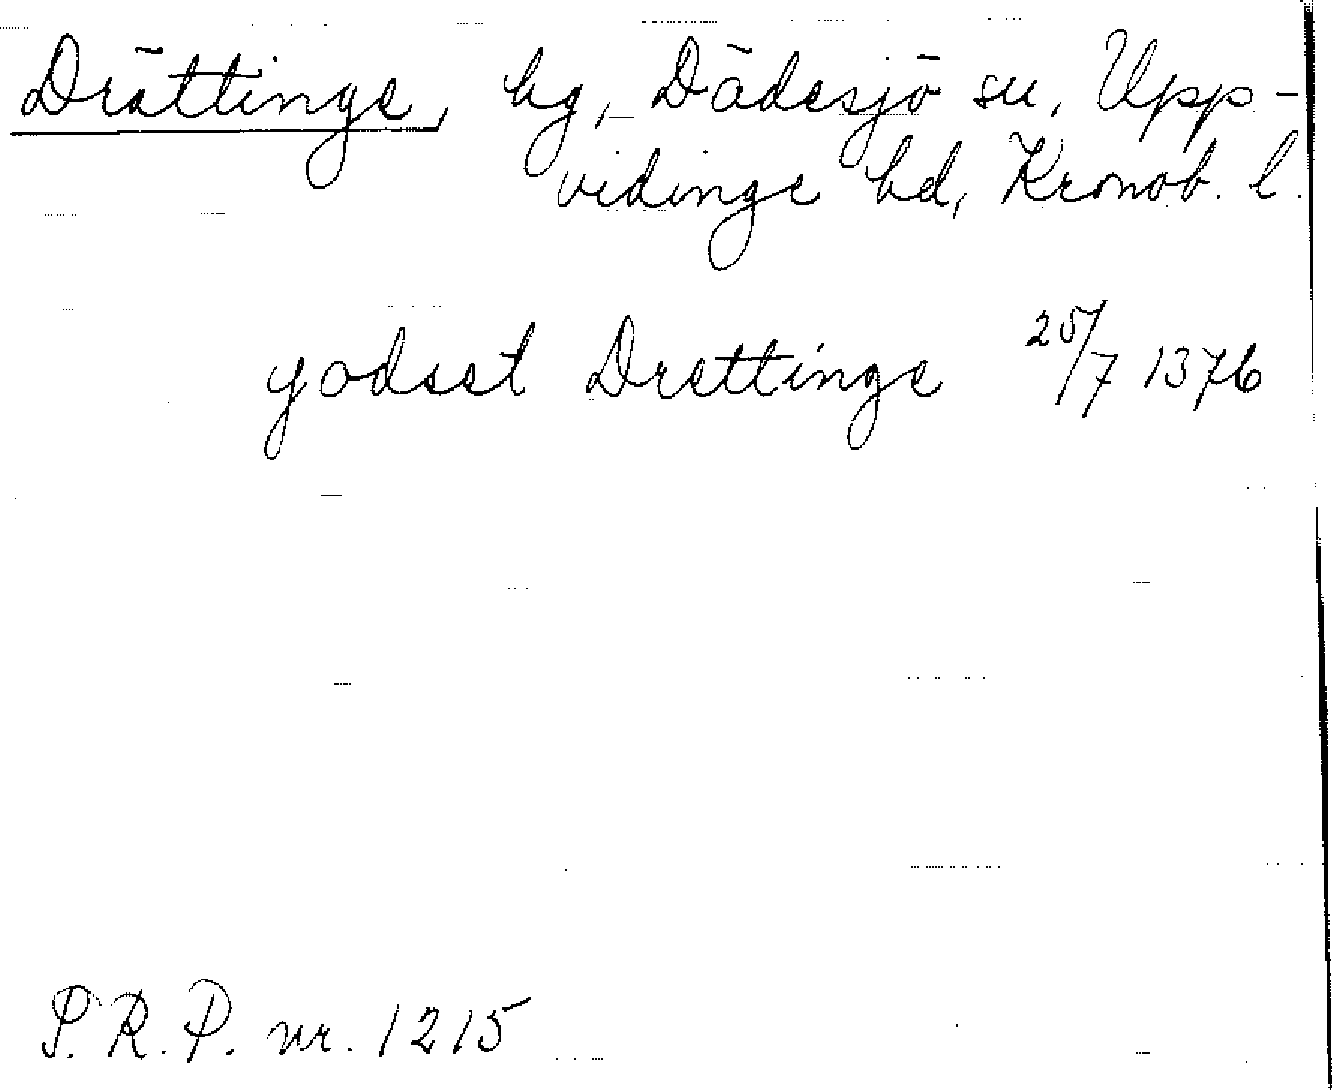 Drättinge, hg, Dädesjö su, Upp-
vidinge hd, Kronob. l.
godset Drettinge 25/7 1376
S.R.P. nr. 1215